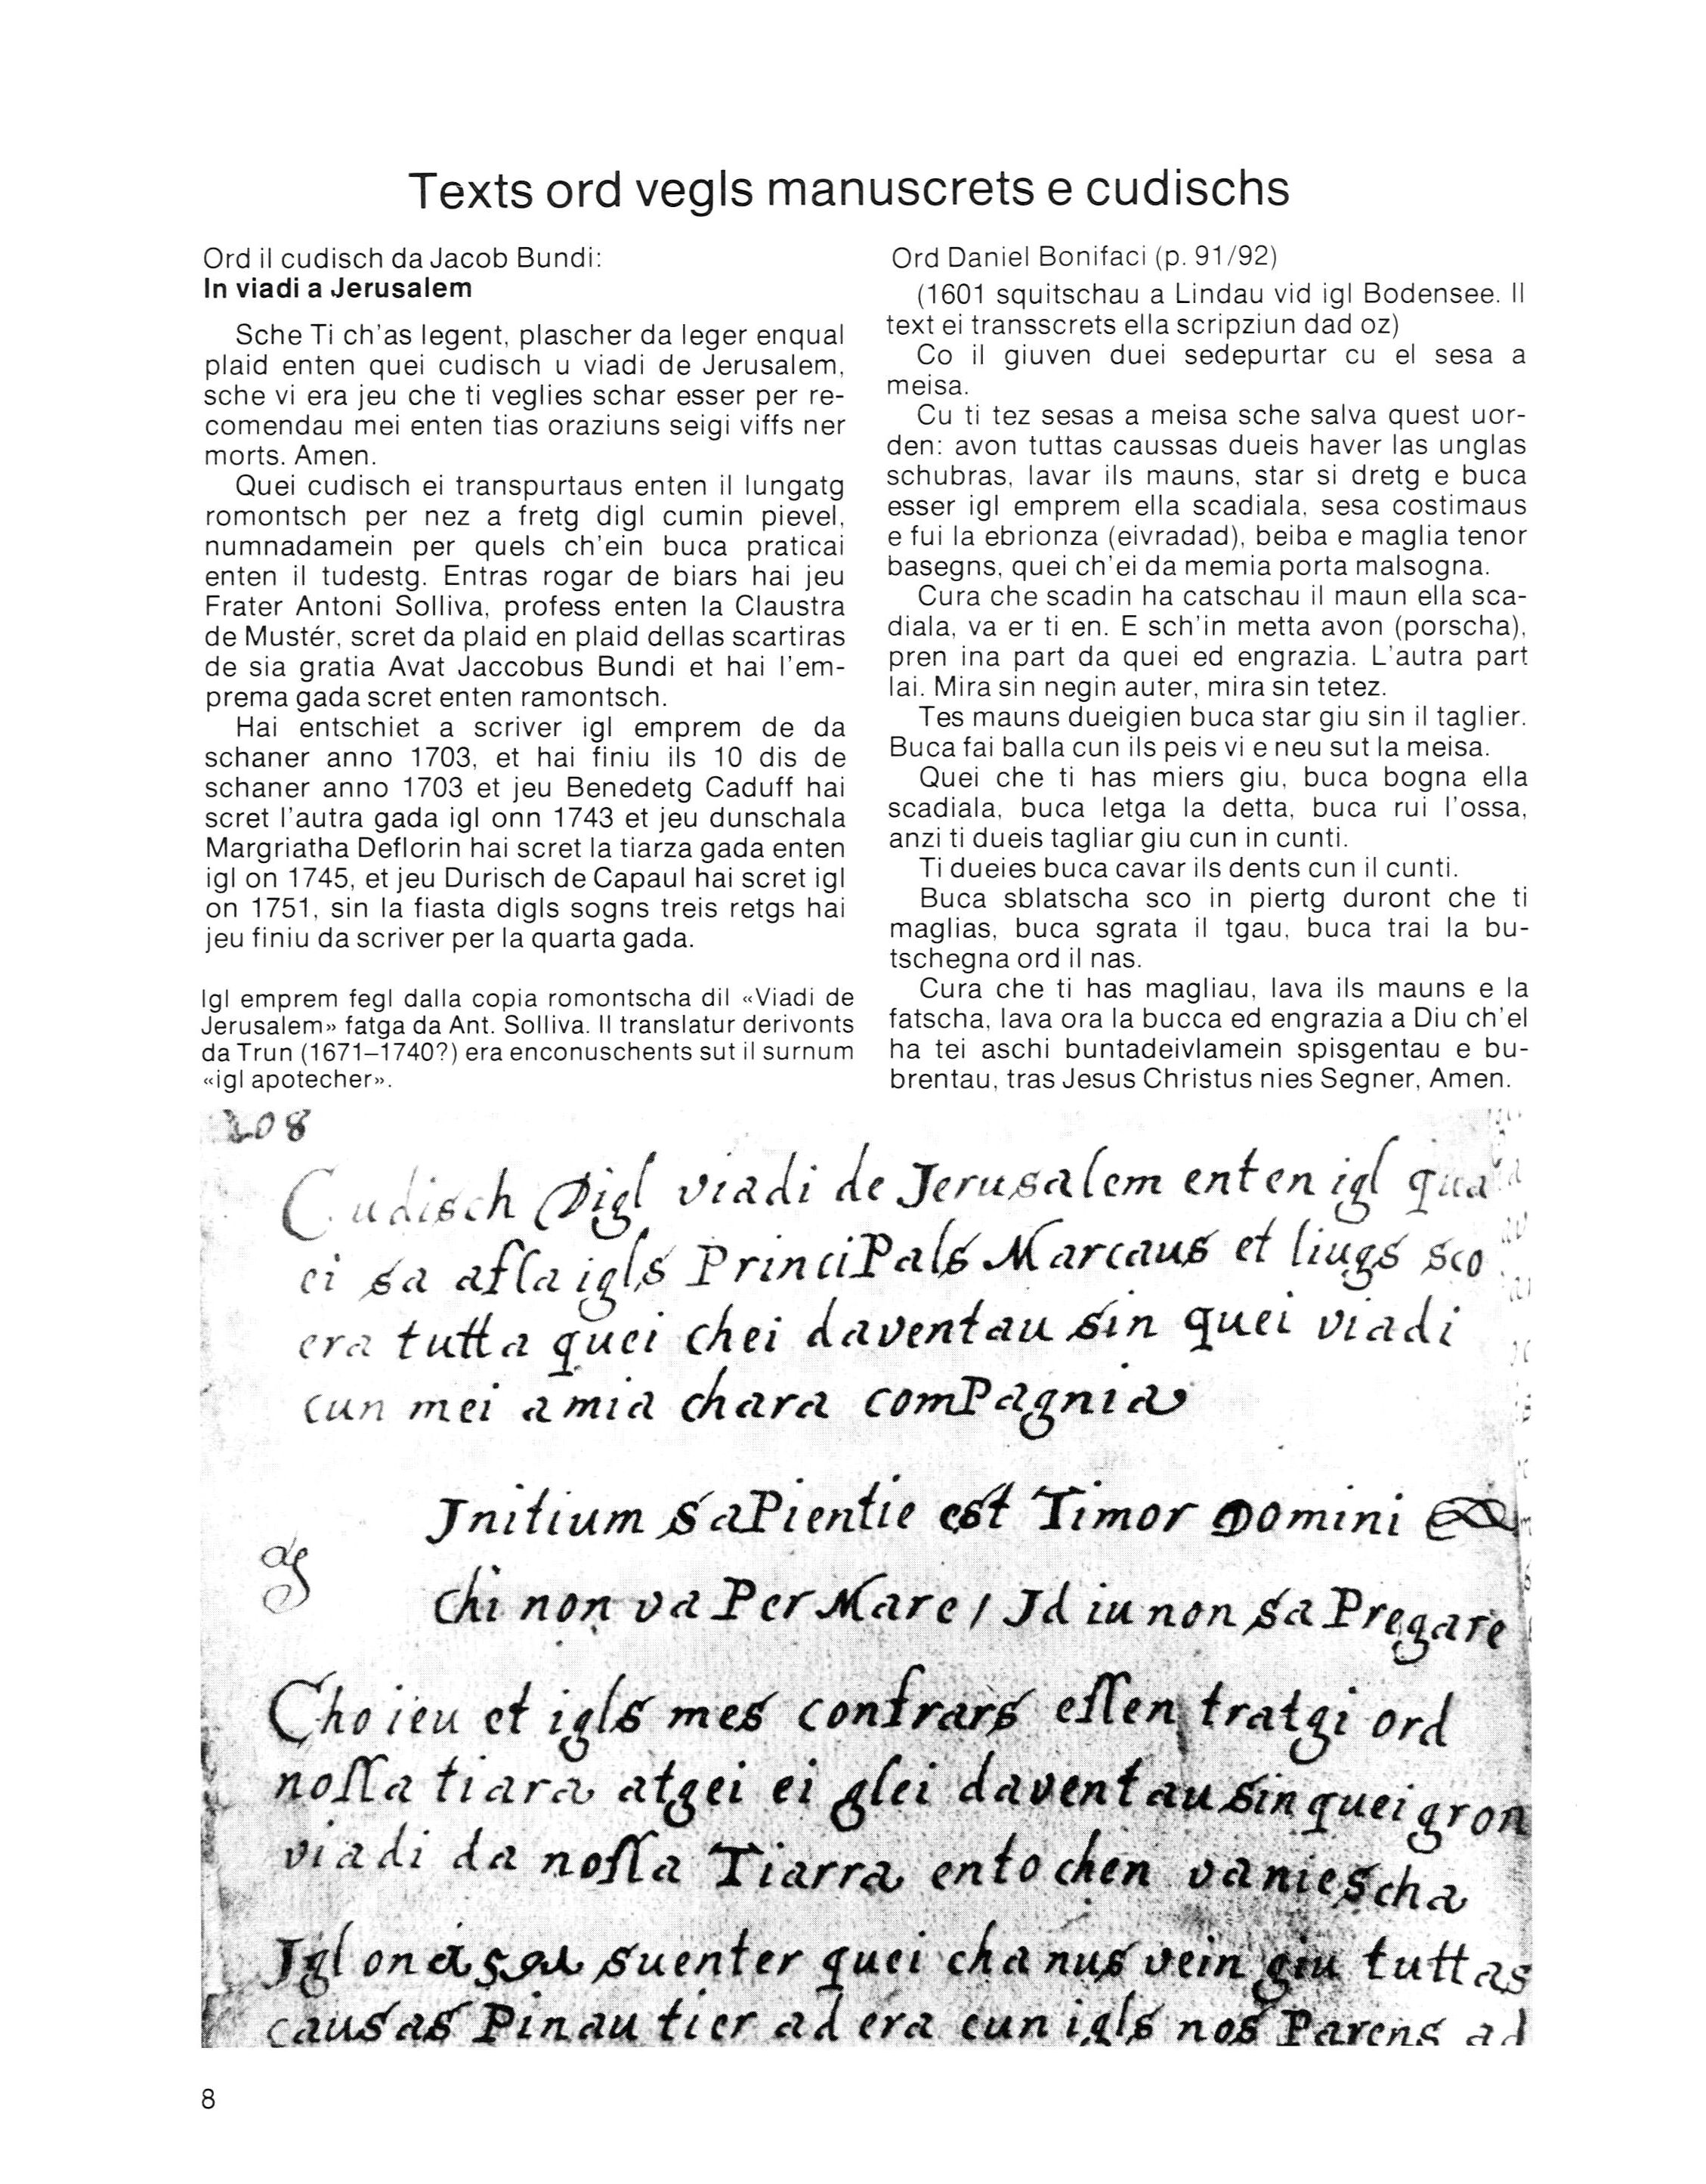 Texts ord vegls manuscrets e cudischs
Ord il cudisch da Jacob Bundi:
In viadi a Jerusalem
Sche Ti ch'as legent, plascher da leger enqual
plaid enten quei cudisch u viadi de Jerusalem,
sche vi era jeu che ti veglies schar esser per re-
comendau mei enten tias oraziuns seigi viffs ner
morts. Amen.
Quei cudisch ei transpurtaus enten il lungatg
romontsch per nez a fretg digl cumin pievel,
numnadamein per quels ch'ein buca praticai
enten il tudestg. Entras rogar de biars hai jeu
Frater Antoni Solliva, profess enten la Claustra
de Mustér, scret da plaid en plaid dellas scartiras
de sia gratia Avat Jaccobus Bundi et hai l'em-
prema gada scret enten ramontsch.
Hai entschiet a scriver igl emprem de da
schaner anno 1703, et hai finiu ils 10 dis de
schaner anno 1703 et jeu Benedetg Caduff hai
scret l'autra gada igl onn 1743 et jeu dunschala
Margriatha Deflorin hai scret la tiarza gada enten
igl on 1745, et jeu Durisch de Capaul hai scret igl
on 1751, sin la fiasta digls sogns treis retgs hai
jeu finiu da scriver per la quarta gada.
Igl emprem fegl dalla copia romontscha dil «Viadi de
Jerusalem» fatga da Ant. Solliva. Il translatur derivonts
da Trun (1671–1740?) era enconuschents sut il surnum
«igl apotecher».
Ord Daniel Bonifaci (p. 91/92)
(1601 squitschau a Lindau vid igl Bodensee. Il
text ei transscrets ella scripziun dad oz)
Co il giuven duei sedepurtar cu el sesa a
meisa.
Cu ti tez sesas a meisa sche salva quest uor-
den: avon tuttas caussas dueis haver las unglas
schubras, lavar ils mauns, star si dretg e buca
esser igl emprem ella scadiala, sesa costimaus
e fui la ebrionza (eivradad), beiba e maglia tenor
basegns, quei ch'ei da memia porta malsogna.
Cura che scadin ha catschau il maun ella sca-
diala, va er ti en. E sch'in metta avon (porscha),
pren ina part da quei ed engrazia. L'autra part
lai. Mira sin negin auter, mira sin tetez.
Tes mauns dueigien buca star giu sin il taglier.
Buca fai balla cun ils peis vi e neu sut la meisa.
Quei che ti has miers giu, buca bogna ella
scadiala, buca letga la detta, buca rui l'ossa,
anzi ti dueis tagliar giu cun in cunti.
Ti dueies buca cavar ils dents cun il cunti.
Buca sblatscha sco in piertg duront che ti
maglias, buca sgrata il tgau, buca trai la bu-
tschegna ord il nas.
Cura che ti has magliau, lava ils mauns e la
fatscha, lava ora la bucca ed engrazia a Diu ch'el
ha tei aschi buntadeivlamein spisgentau e bu-
brentau, tras Jesus Christus nies Segner, Amen.
208
Cudisch Digl viadi de Jerusalem enten igl
ei sa afla igls PrinciPals Marcaus et liugs sco
era tutta quei chei daventau sin quei viadi
cun mei a mia chara comPagnia
Jnitium saPientie est Timor Domini
chi non va Per Mare / Jd iu non sa Pregare
Cho ieu et igls mes confrars eſſen tratgi ord
noſſa tiara atgei ei glei daventau sin quei gron
viadi da noſſa Tiarra ento chen vaniescha
Jgl on suenter quei cha nus vein giu tuttas
causas Pinau tier ad era cun igls nos Parens ad
8